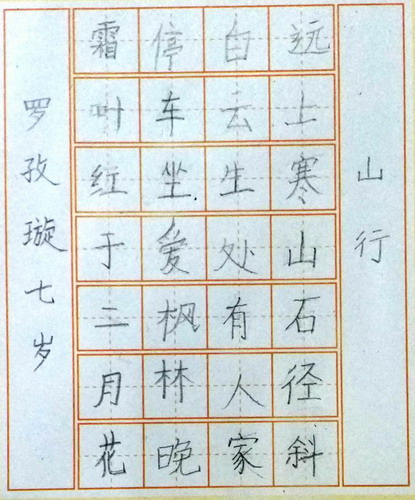 山行
远上寒山石径斜
白云生处有人家
停车坐爱枫林晚
霜叶红于二月花
罗孜璇七岁